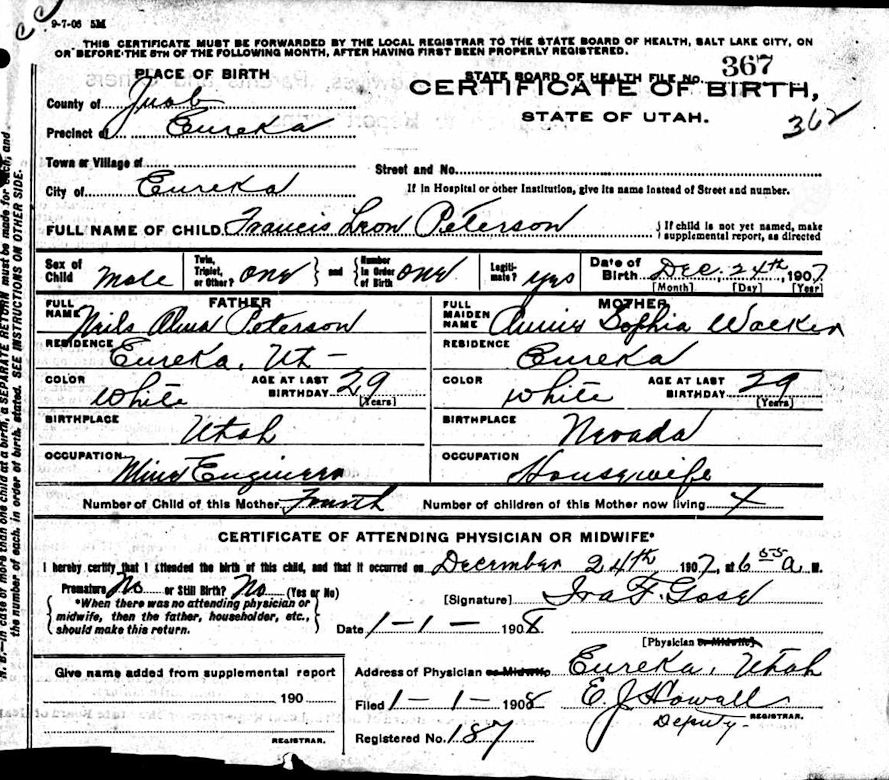 9-7-06 5M
THIS CERTIFICATE MUST BE FORWARDED BY THE LOCAL REGISTRAR TO THE STATE BOARD OF HEALTH, SALT LAKE CITY, ON
OR BEFORE THE 5TH OF THE FOLLOWING MONTH, AFTER HAVING FIRST BEEN PROPERLY REGISTERED.
PLACE OF BIRTH
STATE BOARD OF HEALTH FILE NO. 367
CERTIFICATE OF BIRTH,
STATE OF UTAH.
362
County of Juab
Precinct of Eureka
Town or Village of
Street and No.
City of Eureka
If in Hospital or other Institution, give its name instead of Street and number.
FULL NAME OF CHILD Francis Leon Peterson
{ If child is not yet named, make supplemental report, as directed
Sex of Child Male
Twin, Triplet, or Other? one } and { Number in Order of Birth one
Legitimate? yes
Date of Birth Dec. 24th, 1907
[Month] [Day] [Year]
FATHER
FULL NAME Niels Alma Peterson
RESIDENCE Eureka, Ut-
COLOR White
AGE AT LAST BIRTHDAY 29
[Years]
BIRTHPLACE Utah
OCCUPATION Mine Engineer
MOTHER
FULL MAIDEN NAME Annie Sophia Walker
RESIDENCE Eureka
COLOR White
AGE AT LAST BIRTHDAY 29
[Years]
BIRTHPLACE Nevada
OCCUPATION Housewife
Number of Child of this Mother Fourth
Number of children of this Mother now living 4
CERTIFICATE OF ATTENDING PHYSICIAN OR MIDWIFE*
I hereby certify that I attended the birth of this child, and that it occurred on December 24th 1907, at 6 a M.
Premature No or Still Birth? No (Yes or No)
{ *When there was no attending physician or midwife, then the father, householder, etc., should make this return. }
[Signature] Ira F. Gose
Date 1-1- 1908
[Physician or Midwife]
Give name added from supplemental report
190
REGISTRAR.
Address of Physician or Midwife Eureka, Utah
Filed 1-1- 1908 E J Howall
Deputy- REGISTRAR.
Registered No. 187
N. B.—In case of more than one child at a birth, a SEPARATE RETURN must be made for each, and
the number of each, in order of birth, stated. SEE INSTRUCTIONS ON OTHER SIDE.